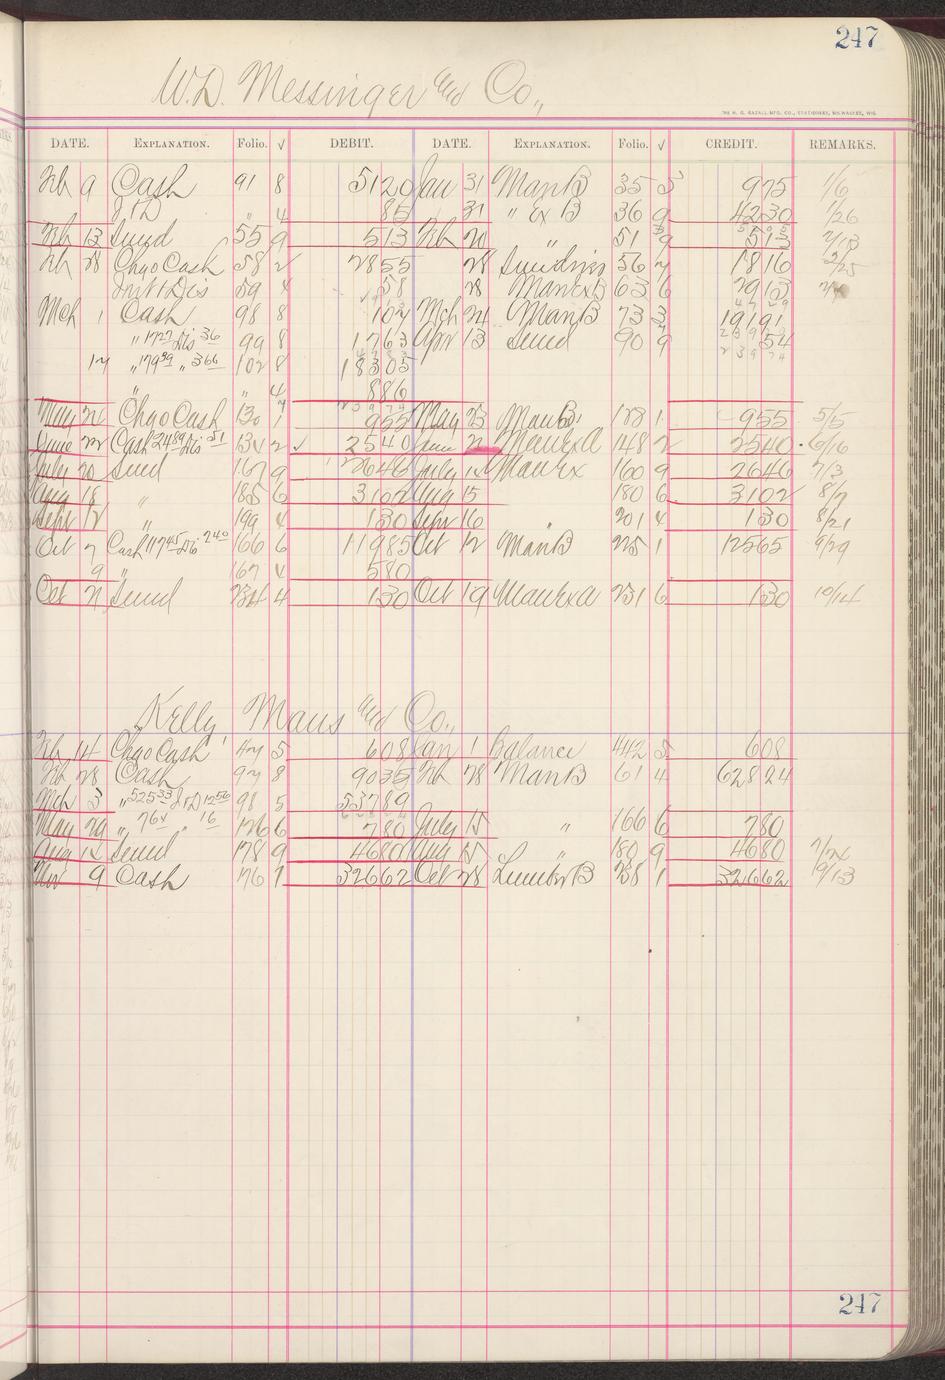 247
W.D. Messinger and Co.,
THE H. G. RAZALL MFG. CO., STATIONERS, MILWAUKEE, WIS.
DATE. EXPLANATION. Folio. √ DEBIT. DATE. EXPLANATION. Folio. √ CREDIT. REMARKS.
Feb 9 Cash 91 8 5120 Jan 31 Man B 35 5 975 1/6
" 4 85 31 " Ex B 36 9 4230 1/26
Feb 13 Sund 55 9 513 Feb 20 51 9 513 2/13
Feb 28 Chgo Cash 58 2 2855 28 Sundries 56 2 1816
59 4 58 28 Man Ex B 63 6 2913
Mch 1 Cash 98 8 102 Mch 24 Man B 73 3 19191
" 1727 Dis 36 99 8 1763 Apr 13 Sund 90 9 54
12 " 366 102 8 18305
" " 4 886
May 24 Chgo Cash 130 1 955 May 23 Man B 128 1 955 5/5
June 22 Cash 2489 Dis 51 134 2 2540 June 2 Man Ex a 148 2 2540 6/16
July 20 Sund 167 9 2646 July 14 Man Ex 160 9 2646 7/3
Aug 18 " 185 6 3102 Aug 15 180 6 3102 8/7
Sept 12 " 199 4 130 Sept 16 201 4 130 8/21
Oct 7 Cash 11745 Dis 240 166 6 11985 Oct 12 Man B 225 1 12565 9/29
9 " 167 4 580
Oct 21 Sund 234 4 130 Oct 19 Man Ex a 231 6 130 10/14
Kelly Maus and Co.,
Feb 14 Chgo Cash 47 5 608 Jan 1 Balance 442 5 608
Feb 28 Cash 97 8 9035 Feb 28 Man B 61 4 62824
Mch 5 " 52533 1256 98 5 53789
May 29 " 764 " 16 126 6 780 July 15 " 166 6 780
Aug 14 Sund 178 9 4680 Aug 15 " 180 9 4680 7/24
Nov 9 Cash 176 1 32662 Oct 28 Lumber B 238 1 32662 9/13
247